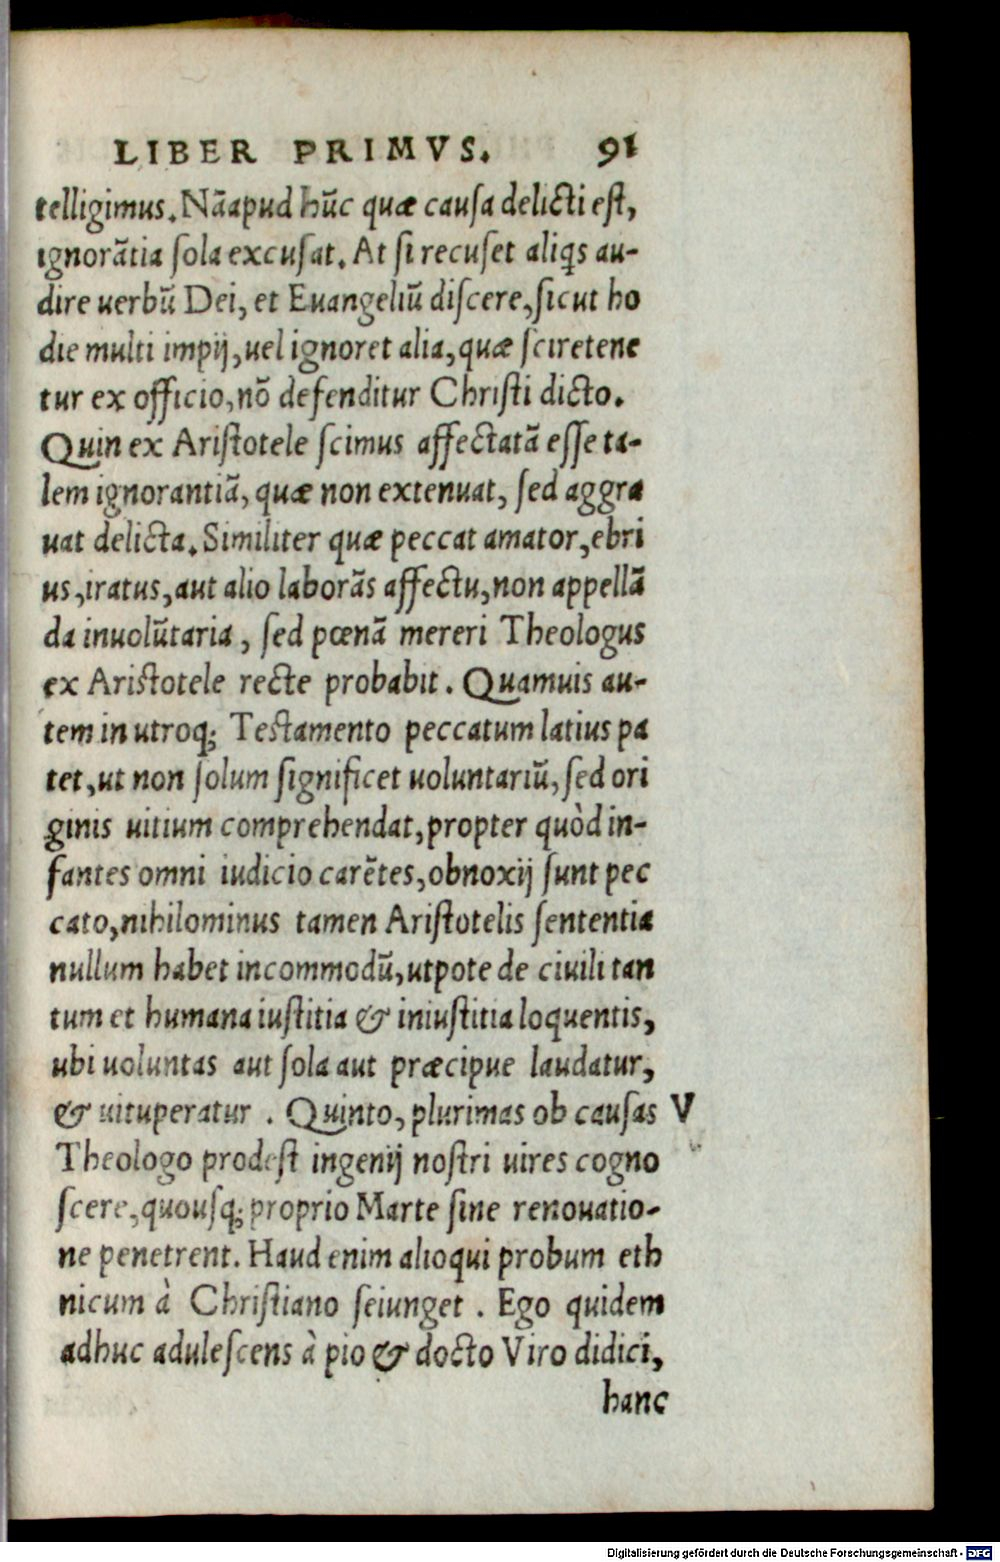 LIBER PRIMVS. 91
telligimus. Nãapud hũc quæ causa delicti est,
ignorãtia sola excusat. At si recuset aliq̃s au-
dire uerbũ Dei, et Euangeliũ discere, sicut ho
die multi impij, uel ignoret alia, quæ scire tene
tur ex officio, nõ defenditur Christi dicto.
Quin ex Aristotele scimus affectatã esse ta-
lem ignorantiã, quæ non extenuat, sed aggra
uat delicta. Similiter quæ peccat amator, ebri
us, iratus, aut alio laborãs affectu, non appellã
da inuolũtaria, sed pœnã mereri Theologus
ex Aristotele recte probabit. Quamuis au-
tem in utroq; Testamento peccatum latius pa
tet, ut non solum significet uoluntariũ, sed ori
ginis uitium comprehendat, propter quòd in-
fantes omni iudicio carẽtes, obnoxij sunt pec
cato, nihilominus tamen Aristotelis sententia
nullum habet incommodũ, utpote de ciuili tan
tum et humana iustitia & iniustitia loquentis,
ubi uoluntas aut sola aut præcipue laudatur,
& uituperatur. Quinto, plurimas ob causas V
Theologo prodest ingenij nostri uires cogno
scere, quousq; proprio Marte sine renouatio-
ne penetrent. Haud enim alioqui probum eth
nicum à Christiano seiunget. Ego quidem
adhuc adulescens à pio & docto Viro didici,
hanc
Digitalisierung gefördert durch die Deutsche Forschungsgemeinschaft - DFG